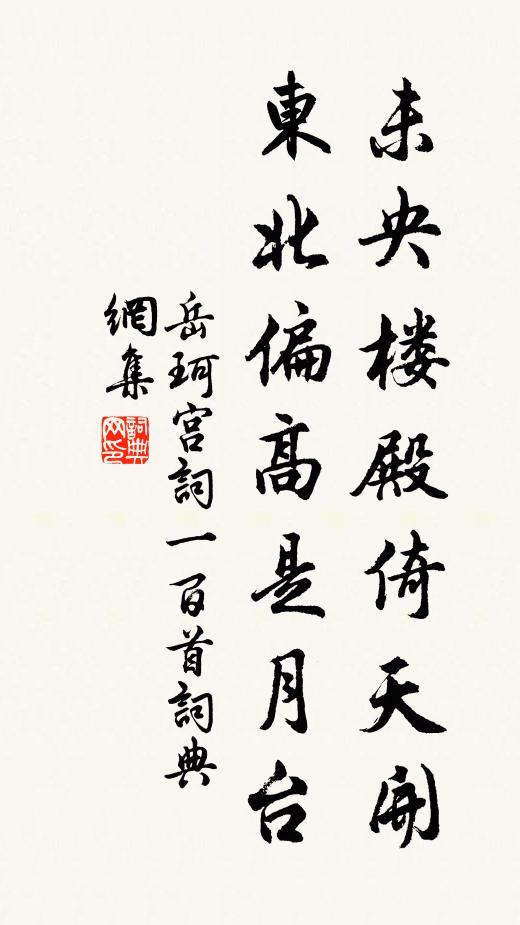 未央楼殿倚天開
東北偏高是月台
岳珂宫詞一百首詞典
網集
詞典網印